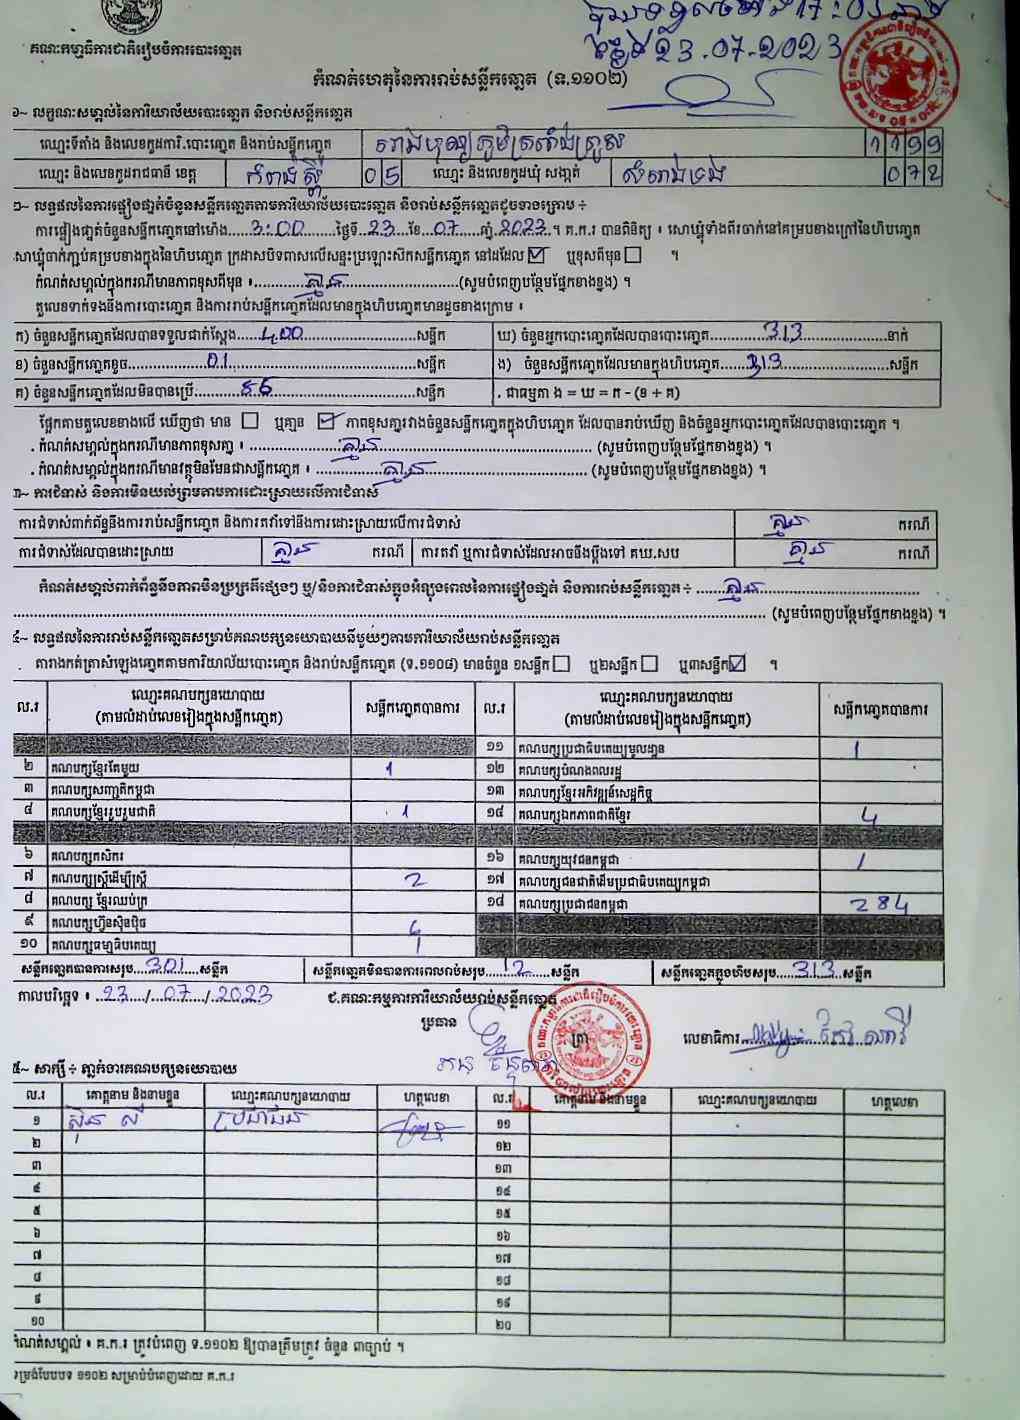 គណៈកម្មាធិការជាតិរៀបចំការបោះឆ្នោត
17:05
23.07.2023
កំណត់ហេតុនៃការរាប់សន្លឹកឆ្នោត (ទ.១១០២)
១~ លក្ខណៈសម្គាល់នៃការិយាល័យបោះឆ្នោត និងរាប់សន្លឹកឆ្នោត
ឈ្មោះទីតាំង និងលេខកូដការិ.បោះឆ្នោត និងរាប់សន្លឹកឆ្នោត 1199
ឈ្មោះ និងលេខកូដរាជធានី ខេត្ត កំពង់ស្ពឺ 05 ឈ្មោះ និងលេខកូដឃុំ សង្កាត់ 072
២~ លទ្ធផលនៃការផ្ទៀងផ្ទាត់ចំនួនសន្លឹកឆ្នោតតាមការិយាល័យបោះឆ្នោត និងរាប់សន្លឹកឆ្នោតដូចខាងក្រោម ៖
ការផ្ទៀងផ្ទាត់ចំនួនសន្លឹកឆ្នោតនៅម៉ោង 3:00 ថ្ងៃទី 23 ខែ 07 ឆ្នាំ 2023 ។ គ.ក.រ បានពិនិត្យ ៖ សោឃ្លុំទាំងពីរចាក់នៅគម្របខាងក្រៅនៃហិបឆ្នោត
សាឃ្លុំចាក់ភ្ជាប់គម្របខាងក្នុងនៃហិបឆ្នោត ក្រដាសបិទពាសលើសន្ទះប្រឡោះស៊កសន្លឹកឆ្នោត នៅដដែល ☑ ឬខុសពីមុន ☐ ។
កំណត់សម្គាល់ក្នុងករណីមានភាពខុសពីមុន ៖ គ្មាន (សូមបំពេញបន្ថែមផ្នែកខាងខ្នង) ។
តួលេខទាក់ទងនឹងការបោះឆ្នោត និងការរាប់សន្លឹកឆ្នោតដែលមានក្នុងហិបឆ្នោតមានដូចខាងក្រោម ៖
ក) ចំនួនសន្លឹកឆ្នោតដែលបានទទួលជាក់ស្តែង 400 សន្លឹក ឃ) ចំនួនអ្នកបោះឆ្នោតដែលបានបោះឆ្នោត 313 នាក់
ខ) ចំនួនសន្លឹកឆ្នោតខូច 01 សន្លឹក ង) ចំនួនសន្លឹកឆ្នោតដែលមានក្នុងហិបឆ្នោត 313 សន្លឹក
គ) ចំនួនសន្លឹកឆ្នោតដែលមិនបានប្រើ 86 សន្លឹក . ជាធម្មតា ង = ឃ = ក - (ខ + គ)
ផ្អែកតាមតួលេខខាងលើ ឃើញថា មាន ☐ ឬគ្មាន ☑ ភាពខុសគ្នារវាងចំនួនសន្លឹកឆ្នោតក្នុងហិបឆ្នោត ដែលបានរាប់ឃើញ និងចំនួនអ្នកបោះឆ្នោតដែលបានបោះឆ្នោត ។
. កំណត់សម្គាល់ក្នុងករណីមានភាពខុសគ្នា ៖ គ្មាន (សូមបំពេញបន្ថែមផ្នែកខាងខ្នង) ។
. កំណត់សម្គាល់ក្នុងករណីមានវត្ថុមិនមែនជាសន្លឹកឆ្នោត ៖ គ្មាន (សូមបំពេញបន្ថែមផ្នែកខាងខ្នង) ។
៣~ ការជំទាស់ និងការមិនយល់ព្រមតាមការដោះស្រាយលើការជំទាស់
ការជំទាស់ពាក់ព័ន្ធនឹងការរាប់សន្លឹកឆ្នោត និងការតវ៉ាទៅនឹងការដោះស្រាយលើការជំទាស់ គ្មាន ករណី
ការជំទាស់ដែលបានដោះស្រាយ គ្មាន ករណី ការតវ៉ា ឬការជំទាស់ដែលអាចនឹងប្តឹងទៅ គឃ.សប គ្មាន ករណី
កំណត់សម្គាល់ពាក់ព័ន្ធនឹងភាពមិនប្រក្រតីផ្សេងៗ ឬ/និងការជំទាស់ក្នុងអំឡុងពេលនៃការផ្ទៀងផ្ទាត់ និងការរាប់សន្លឹកឆ្នោត ៖ គ្មាន
(សូមបំពេញបន្ថែមផ្នែកខាងខ្នង) ។
៤~ លទ្ធផលនៃការរាប់សន្លឹកឆ្នោតសម្រាប់គណបក្សនយោបាយនីមួយៗតាមការិយាល័យរាប់សន្លឹកឆ្នោត
តារាងកត់ត្រាសំឡេងឆ្នោតតាមការិយាល័យបោះឆ្នោត និងរាប់សន្លឹកឆ្នោត (ទ.១១០៨) មានចំនួន ១សន្លឹក ☐ ឬ២សន្លឹក ☐ ឬ៣សន្លឹក ☑ ។
ល.រ ឈ្មោះគណបក្សនយោបាយ (តាមលំដាប់លេខរៀងក្នុងសន្លឹកឆ្នោត) សន្លឹកឆ្នោតបានការ ល.រ ឈ្មោះគណបក្សនយោបាយ (តាមលំដាប់លេខរៀងក្នុងសន្លឹកឆ្នោត) សន្លឹកឆ្នោតបានការ
១១ គណបក្សប្រជាធិបតេយ្យមូលដ្ឋាន 1
២ គណបក្សខ្មែរតែមួយ 1 ១២ គណបក្សបំណងពលរដ្ឋ
៣ គណបក្សសញ្ជាតិកម្ពុជា ១៣ គណបក្សខ្មែរអភិវឌ្ឍន៍សេដ្ឋកិច្ច
៤ គណបក្សខ្មែររួបរួមជាតិ 1 ១៤ គណបក្សឯកភាពជាតិខ្មែរ 4
៦ គណបក្សកសិករ ១៦ គណបក្សយុវជនកម្ពុជា 1
៧ គណបក្សស្ត្រីដើម្បីស្ត្រី 2 ១៧ គណបក្សជនជាតិដើមប្រជាធិបតេយ្យកម្ពុជា
៨ គណបក្ស ខ្មែរឈប់ក្រ ១៨ គណបក្សប្រជាជនកម្ពុជា 284
៩ គណបក្សហ្វ៊ុនស៊ិនប៉ិច 6
១០ គណបក្សធម្មាធិបតេយ្យ 1
សន្លឹកឆ្នោតបានការសរុប 301 សន្លឹក សន្លឹកឆ្នោតមិនបានការពេលរាប់សរុប 12 សន្លឹក សន្លឹកឆ្នោតក្នុងហិបសរុប 313 សន្លឹក
កាលបរិច្ឆេទ ៖ 23/07/2023 ជ.គណៈកម្មការការិយាល័យរាប់សន្លឹកឆ្នោត
ប្រធាន ត្រា លេខាធិការ
៥~ សាក្សី ៖ ភ្នាក់ងារគណបក្សនយោបាយ
ល.រ គោត្តនាម និងនាមខ្លួន ឈ្មោះគណបក្សនយោបាយ ហត្ថលេខា ល.រ គោត្តនាម និងនាមខ្លួន ឈ្មោះគណបក្សនយោបាយ ហត្ថលេខា
១ ប្រជាជន ១១
២ ១២
៣ ១៣
៤ ១៤
៥ ១៥
៦ ១៦
៧ ១៧
៨ ១៨
៩ ១៩
១០ ២០
កំណត់សម្គាល់ ៖ គ.ក.រ ត្រូវបំពេញ ទ.១១០២ ឱ្យបានត្រឹមត្រូវ ចំនួន ៣ច្បាប់ ។
ទម្រង់បែបបទ ១១០២ សម្រាប់បំពេញដោយ គ.ក.រ